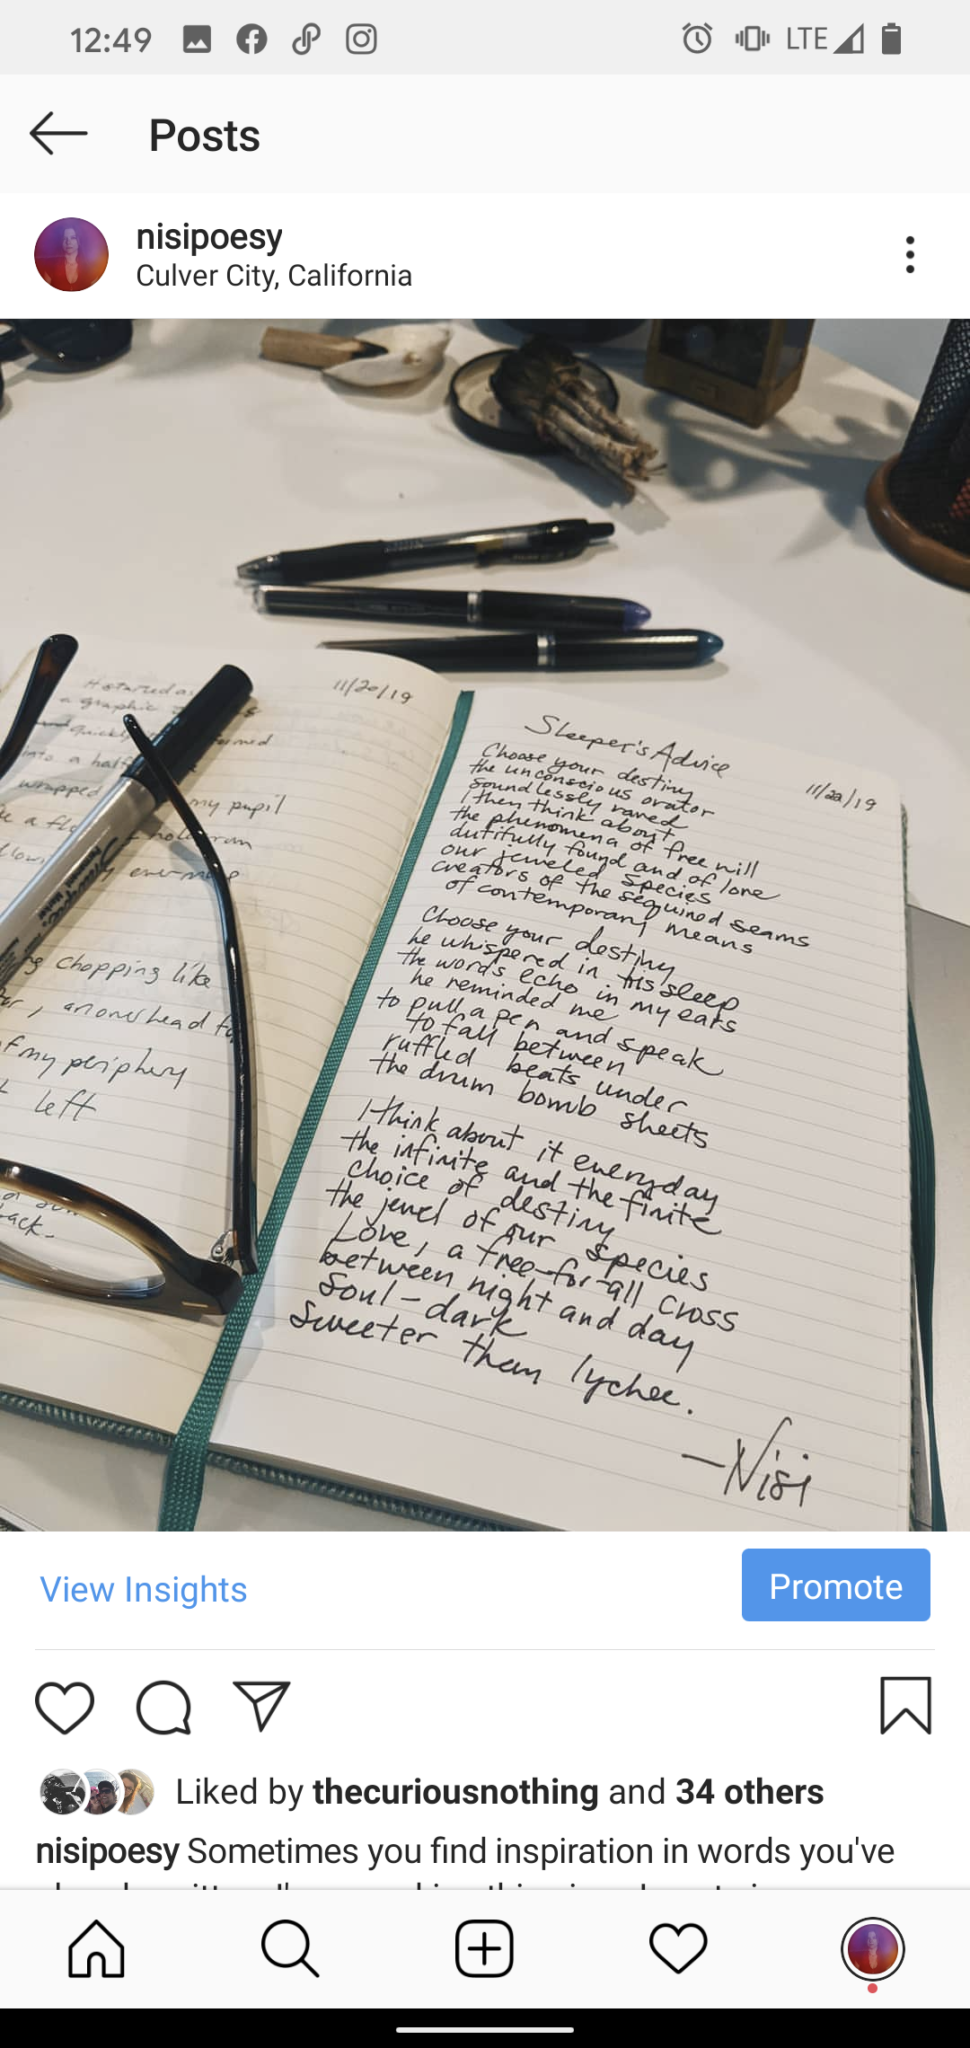 12:49
LTE
Posts
nisipoesy
Culver City, California
11/20/19
It started as
a graphic
quickly
into a half
wrapped
my pupil
a
evermore
chopping like
, arrowhead
of my periphery
left
back.
Sleeper's Advice
11/22/19
Choose your destiny
the unconscious orator
soundlessly raved
I then think about
the phenomena of free will
dutifully found and of lore
our jeweled species
creators of the sequined seams
of contemporary means
Choose your destiny
he whispered in his sleep
the words echo in my ears
he reminded me
to pull a pen and speak
to fall between
ruffled beats under
the drum bomb sheets
I think about it everyday
the infinite and the finite
choice of destiny
the jewel of our species
Love, a free-for-all cross
between night and day
Soul-dark
Sweeter than lychee.
-Nisi
View Insights
Promote
Liked by thecuriousnothing and 34 others
nisipoesy Sometimes you find inspiration in words you've